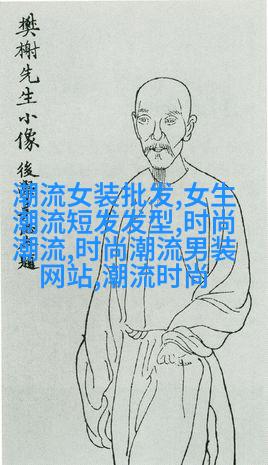 樊榭先生小像
後
題
潮流女装批发,女生
潮流短发发型,时尚
潮流,时尚潮流男装
网站,潮流时尚